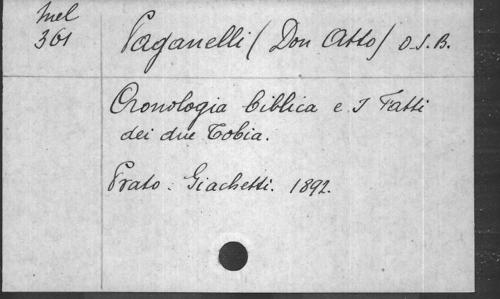 Mel
361
Paganelli (Don Atto) O.S.B.
Cronologia biblica e I Fatti
dei due Tobia.
Prato: Giachetti. 1892.